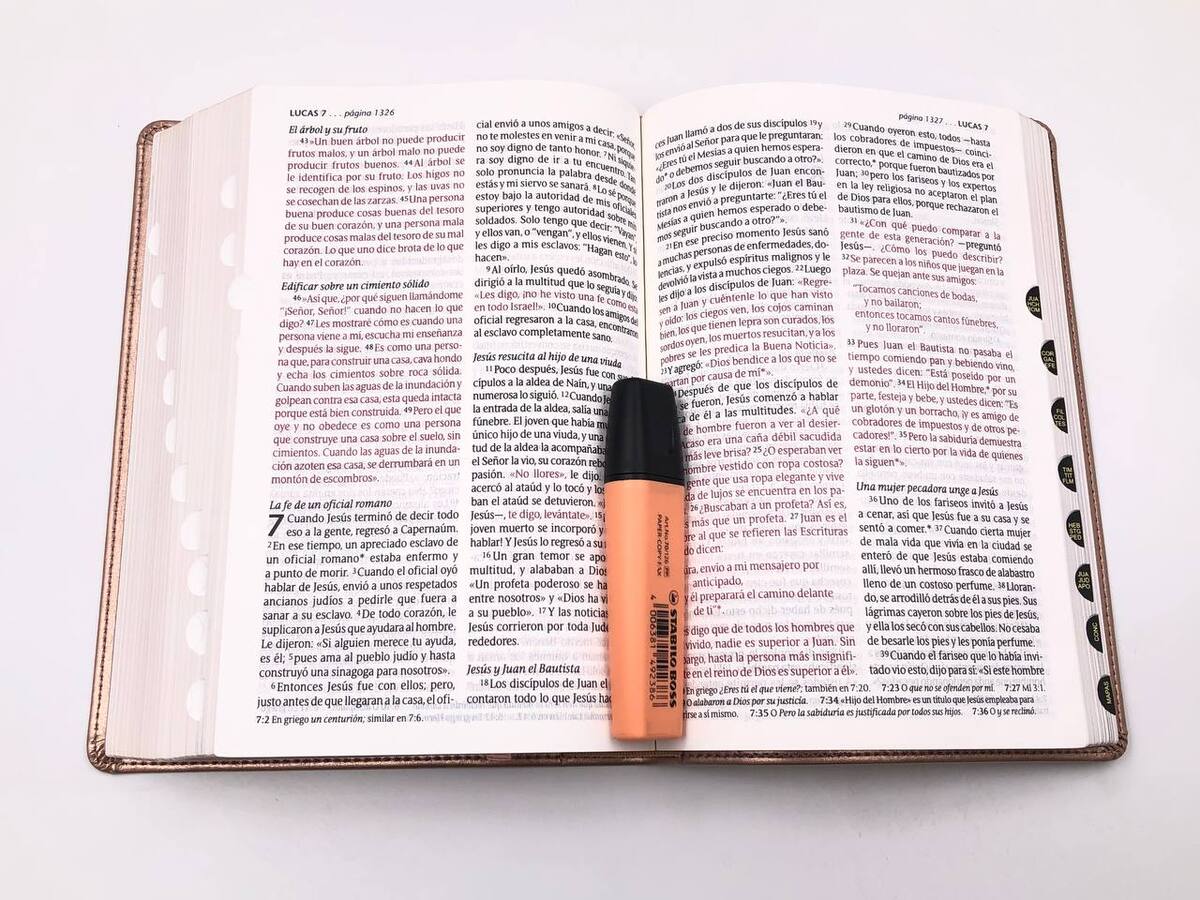 LUCAS 7 . . . página 1326
El árbol y su fruto
43»Un buen árbol no puede producir
frutos malos, y un árbol malo no puede
producir frutos buenos. 44Al árbol se
le identifica por su fruto. Los higos no
se recogen de los espinos, y las uvas no
se cosechan de las zarzas. 45Una persona
buena produce cosas buenas del tesoro
de su buen corazón, y una persona mala
produce cosas malas del tesoro de su mal
corazón. Lo que uno dice brota de lo que
hay en el corazón.
Edificar sobre un cimiento sólido
46»Así que, ¿por qué siguen llamándome
“¡Señor, Señor!” cuando no hacen lo que
digo? 47Les mostraré cómo es cuando una
persona viene a mí, escucha mi enseñanza
y después la sigue. 48Es como una perso-
na que, para construir una casa, cava hondo
y echa los cimientos sobre roca sólida.
Cuando suben las aguas de la inundación y
golpean contra esa casa, esta queda intacta
porque está bien construida. 49Pero el que
oye y no obedece es como una persona
que construye una casa sobre el suelo, sin
cimientos. Cuando las aguas de la inunda-
ción azoten esa casa, se derrumbará en un
montón de escombros».
La fe de un oficial romano
7 Cuando Jesús terminó de decir todo
eso a la gente, regresó a Capernaúm.
2En ese tiempo, un apreciado esclavo de
un oficial romano* estaba enfermo y
a punto de morir. 3Cuando el oficial oyó
hablar de Jesús, envió a unos respetados
ancianos judíos a pedirle que fuera a
sanar a su esclavo. 4De todo corazón, le
suplicaron a Jesús que ayudara al hombre.
Le dijeron: «Si alguien merece tu ayuda,
es él; 5pues ama al pueblo judío y hasta
construyó una sinagoga para nosotros».
6Entonces Jesús fue con ellos; pero,
justo antes de que llegaran a la casa, el ofi-
cial envió a unos amigos a decir: «Señor,
no te molestes en venir a mi casa, porque
no soy digno de tanto honor. 7Ni siquie-
ra soy digno de ir a tu encuentro. Tan
solo pronuncia la palabra desde donde
estás y mi siervo se sanará. 8Lo sé porque
estoy bajo la autoridad de mis oficiales
superiores y tengo autoridad sobre mis
soldados. Solo tengo que decir: “Vayan”
y ellos van, o “vengan”, y ellos vienen. Y si
les digo a mis esclavos: “Hagan esto”, lo
hacen».
9Al oírlo, Jesús quedó asombrado. Se
dirigió a la multitud que lo seguía y dijo:
«Les digo, ¡no he visto una fe como esta
en todo Israel!». 10Cuando los amigos del
oficial regresaron a la casa, encontraron
al esclavo completamente sano.
Jesús resucita al hijo de una viuda
11Poco después, Jesús fue con sus
cípulos a la aldea de Naín, y una
numerosa lo siguió. 12Cuando Je
la entrada de la aldea, salía una
funebre. El joven que había mu
único hijo de una viuda, y una
tud de la aldea la acompañaba
el Señor la vio, su corazón rebo
pasión. «No llores», le dijo.
acercó al ataúd y lo tocó y los
ban el ataúd se detuvieron. «
Jesús—, te digo, levántate». 15
joven muerto se incorporó y
hablar! Y Jesús lo regresó a su
16Un gran temor se apo
multitud, y alababan a Dios
«Un profeta poderoso se ha
entre nosotros» y «Dios ha vi
a su pueblo». 17Y las noticias
Jesús corrieron por toda Jude
rededores.
Jesús y Juan el Bautista
18Los discípulos de Juan el
contaron todo lo que Jesús hac
7:2 En griego un centurión; similar en 7:6.
página 1327 . . . LUCAS 7
ces Juan llamó a dos de sus discípulos 19y
los envió al Señor para que le preguntaran:
«¿Eres tú el Mesías a quien hemos espera-
do* o debemos seguir buscando a otro?».
20Los dos discípulos de Juan encon-
traron a Jesús y le dijeron: «Juan el Bau-
tista nos envió a preguntarte: “¿Eres tú el
Mesías a quien hemos esperado o debe-
mos seguir buscando a otro?”».
21En ese preciso momento Jesús sanó
a muchas personas de enfermedades, do-
lencias, y expulsó espíritus malignos y le
devolvió la vista a muchos ciegos. 22Luego
les dijo a los discípulos de Juan: «Regre-
sen a Juan y cuéntenle lo que han visto
y oído: los ciegos ven, los cojos caminan
bien, los que tienen lepra son curados, los
sordos oyen, los muertos resucitan, y a los
pobres se les predica la Buena Noticia».
23Y agregó: «Dios bendice a los que no se
partan por causa de mí*».
24Después de que los discípulos de
se fueron, Jesús comenzó a hablar
ca de él a las multitudes. «¿A qué
de hombre fueron a ver al desier-
Acaso era una caña débil sacudida
más leve brisa? 25¿O esperaban ver
hombre vestido con ropa costosa?
gente que usa ropa elegante y vive
de lujos se encuentra en los pa-
26¿Buscaban a un profeta? Así es,
más que un profeta. 27Juan es el
re al que se refieren las Escrituras
do dicen:
ra, envío a mi mensajero por
anticipado,
y él preparará el camino delante
de ti”*.
digo que de todos los hombres que
vivido, nadie es superior a Juan. Sin
bargo, hasta la persona más insignifi-
te en el reino de Dios es superior a él».
29Cuando oyeron esto, todos —hasta
los cobradores de impuestos— coinci-
dieron en que el camino de Dios era el
correcto,* porque fueron bautizados por
Juan; 30pero los fariseos y los expertos
en la ley religiosa no aceptaron el plan
de Dios para ellos, porque rechazaron el
bautismo de Juan.
31«¿Con qué puedo comparar a la
gente de esta generación? —preguntó
Jesús—. ¿Cómo los puedo describir?
32Se parecen a los niños que juegan en la
plaza. Se quejan ante sus amigos:
“Tocamos canciones de bodas,
y no bailaron;
entonces tocamos cantos fúnebres,
y no lloraron”.
33Pues Juan el Bautista no pasaba el
tiempo comiendo pan y bebiendo vino,
y ustedes dicen: “Está poseído por un
demonio”. 34El Hijo del Hombre,* por su
parte, festeja y bebe, y ustedes dicen: “Es
un glotón y un borracho, ¡y es amigo de
cobradores de impuestos y de otros pe-
cadores!”. 35Pero la sabiduría demuestra
estar en lo cierto por la vida de quienes
la siguen*».
Una mujer pecadora unge a Jesús
36Uno de los fariseos invitó a Jesús
a cenar, así que Jesús fue a su casa y se
sentó a comer.* 37Cuando cierta mujer
de mala vida que vivía en la ciudad se
enteró de que Jesús estaba comiendo
allí, llevó un hermoso frasco de alabastro
lleno de un costoso perfume. 38Lloran-
do, se arrodilló detrás de él a sus pies. Sus
lágrimas cayeron sobre los pies de Jesús,
y ella los secó con sus cabellos. No cesaba
de besarle los pies y les ponía perfume.
39Cuando el fariseo que lo había invi-
tado vio esto, dijo para sí: «Si este hombre
En griego ¿Eres tú el que viene?; también en 7:20. 7:23 O que no se ofenden por mí. 7:27 Ml 3:1.
O alabaron a Dios por su justicia. 7:34 «Hijo del Hombre» es un título que Jesús empleaba para
rirse a sí mismo. 7:35 O Pero la sabiduría es justificada por todos sus hijos. 7:36 O y se reclinó.
JUA
HCH
ROM
COR
GÁL
EFE
FIL
COL
TES
TIM
TIT
FLM
HEB
STG
PED
JUA
JUD
APO
CONC
MAPAS
Art.No.70/126
PAPER-COPY-FAX
STABILO BOSS
4 006381 492386